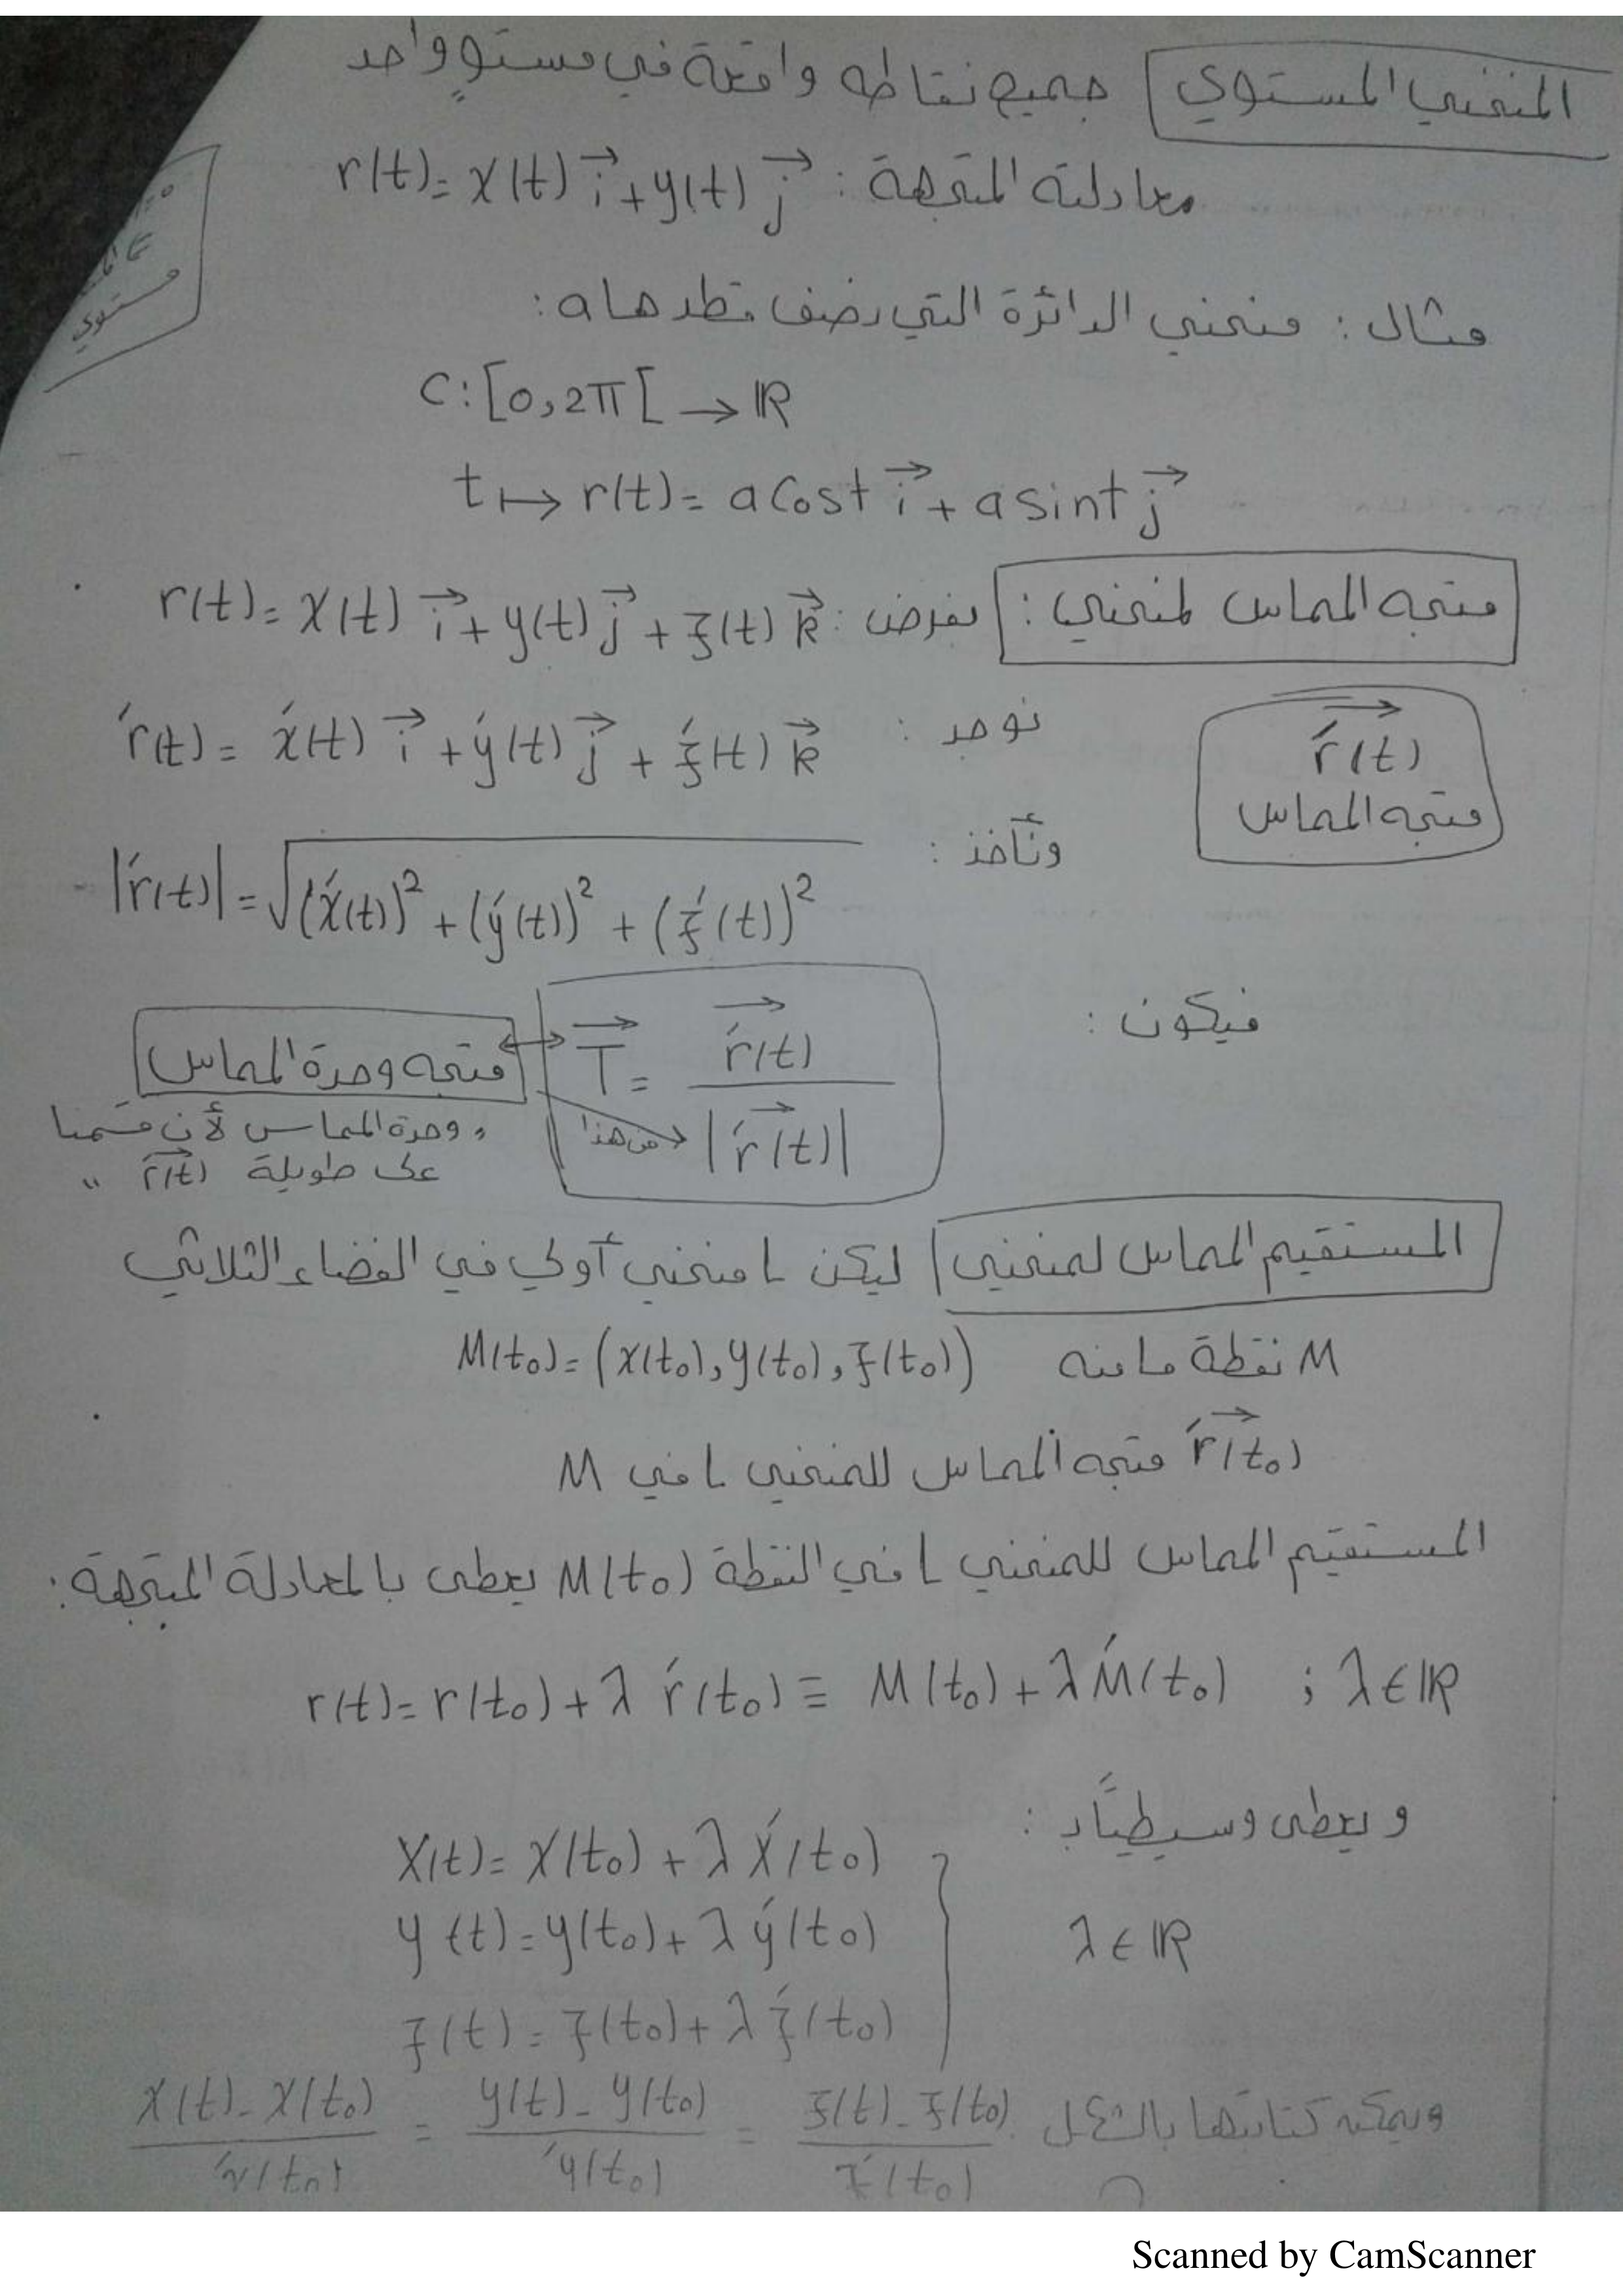 المنحني المستوي جميع نقاطه واقعة في مستوٍ واحد
معادلته المتجهة : r(t) = x(t) i⃗ + y(t) j⃗
مستوي
مثال : منحني الدائرة التي نصف قطرها a :
C : [0, 2π[ → ℝ
t ↦ r(t) = a cos t i⃗ + a sin t j⃗
متجه المماس لمنحني : نفرض : r(t) = x(t) i⃗ + y(t) j⃗ + z(t) k⃗
نوجد : r′(t) = x′(t) i⃗ + y′(t) j⃗ + z′(t) k⃗
r′(t)
متجه المماس
ونأخذ : |r′(t)| = √((x′(t))² + (y′(t))² + (z′(t))²)
فيكون : T⃗ = r′(t) / |r′(t)|
متجه وحدة المماس
من هذا
" وحدة المماس لأن قسمنا
على طويلة r′(t) "
المستقيم المماس لمنحني ليكن L منحني أولي في الفضاء الثلاثي
M نقطة ما منه M(t₀) = (x(t₀), y(t₀), z(t₀))
r′(t₀) متجه المماس للمنحني L في M
المستقيم المماس للمنحني L في النقطة M(t₀) يعطى بالمعادلة المتجهة :
r(t) = r(t₀) + λ r′(t₀) ≡ M(t₀) + λ M′(t₀) ; λ ∈ ℝ
و يعطى وسيطياً بـ :
x(t) = x(t₀) + λ x′(t₀)
y(t) = y(t₀) + λ y′(t₀) λ ∈ ℝ
z(t) = z(t₀) + λ z′(t₀)
ويمكن كتابتها بالشكل (x(t) - x(t₀)) / x′(t₀) = (y(t) - y(t₀)) / y′(t₀) = (z(t) - z(t₀)) / z′(t₀)
Scanned by CamScanner